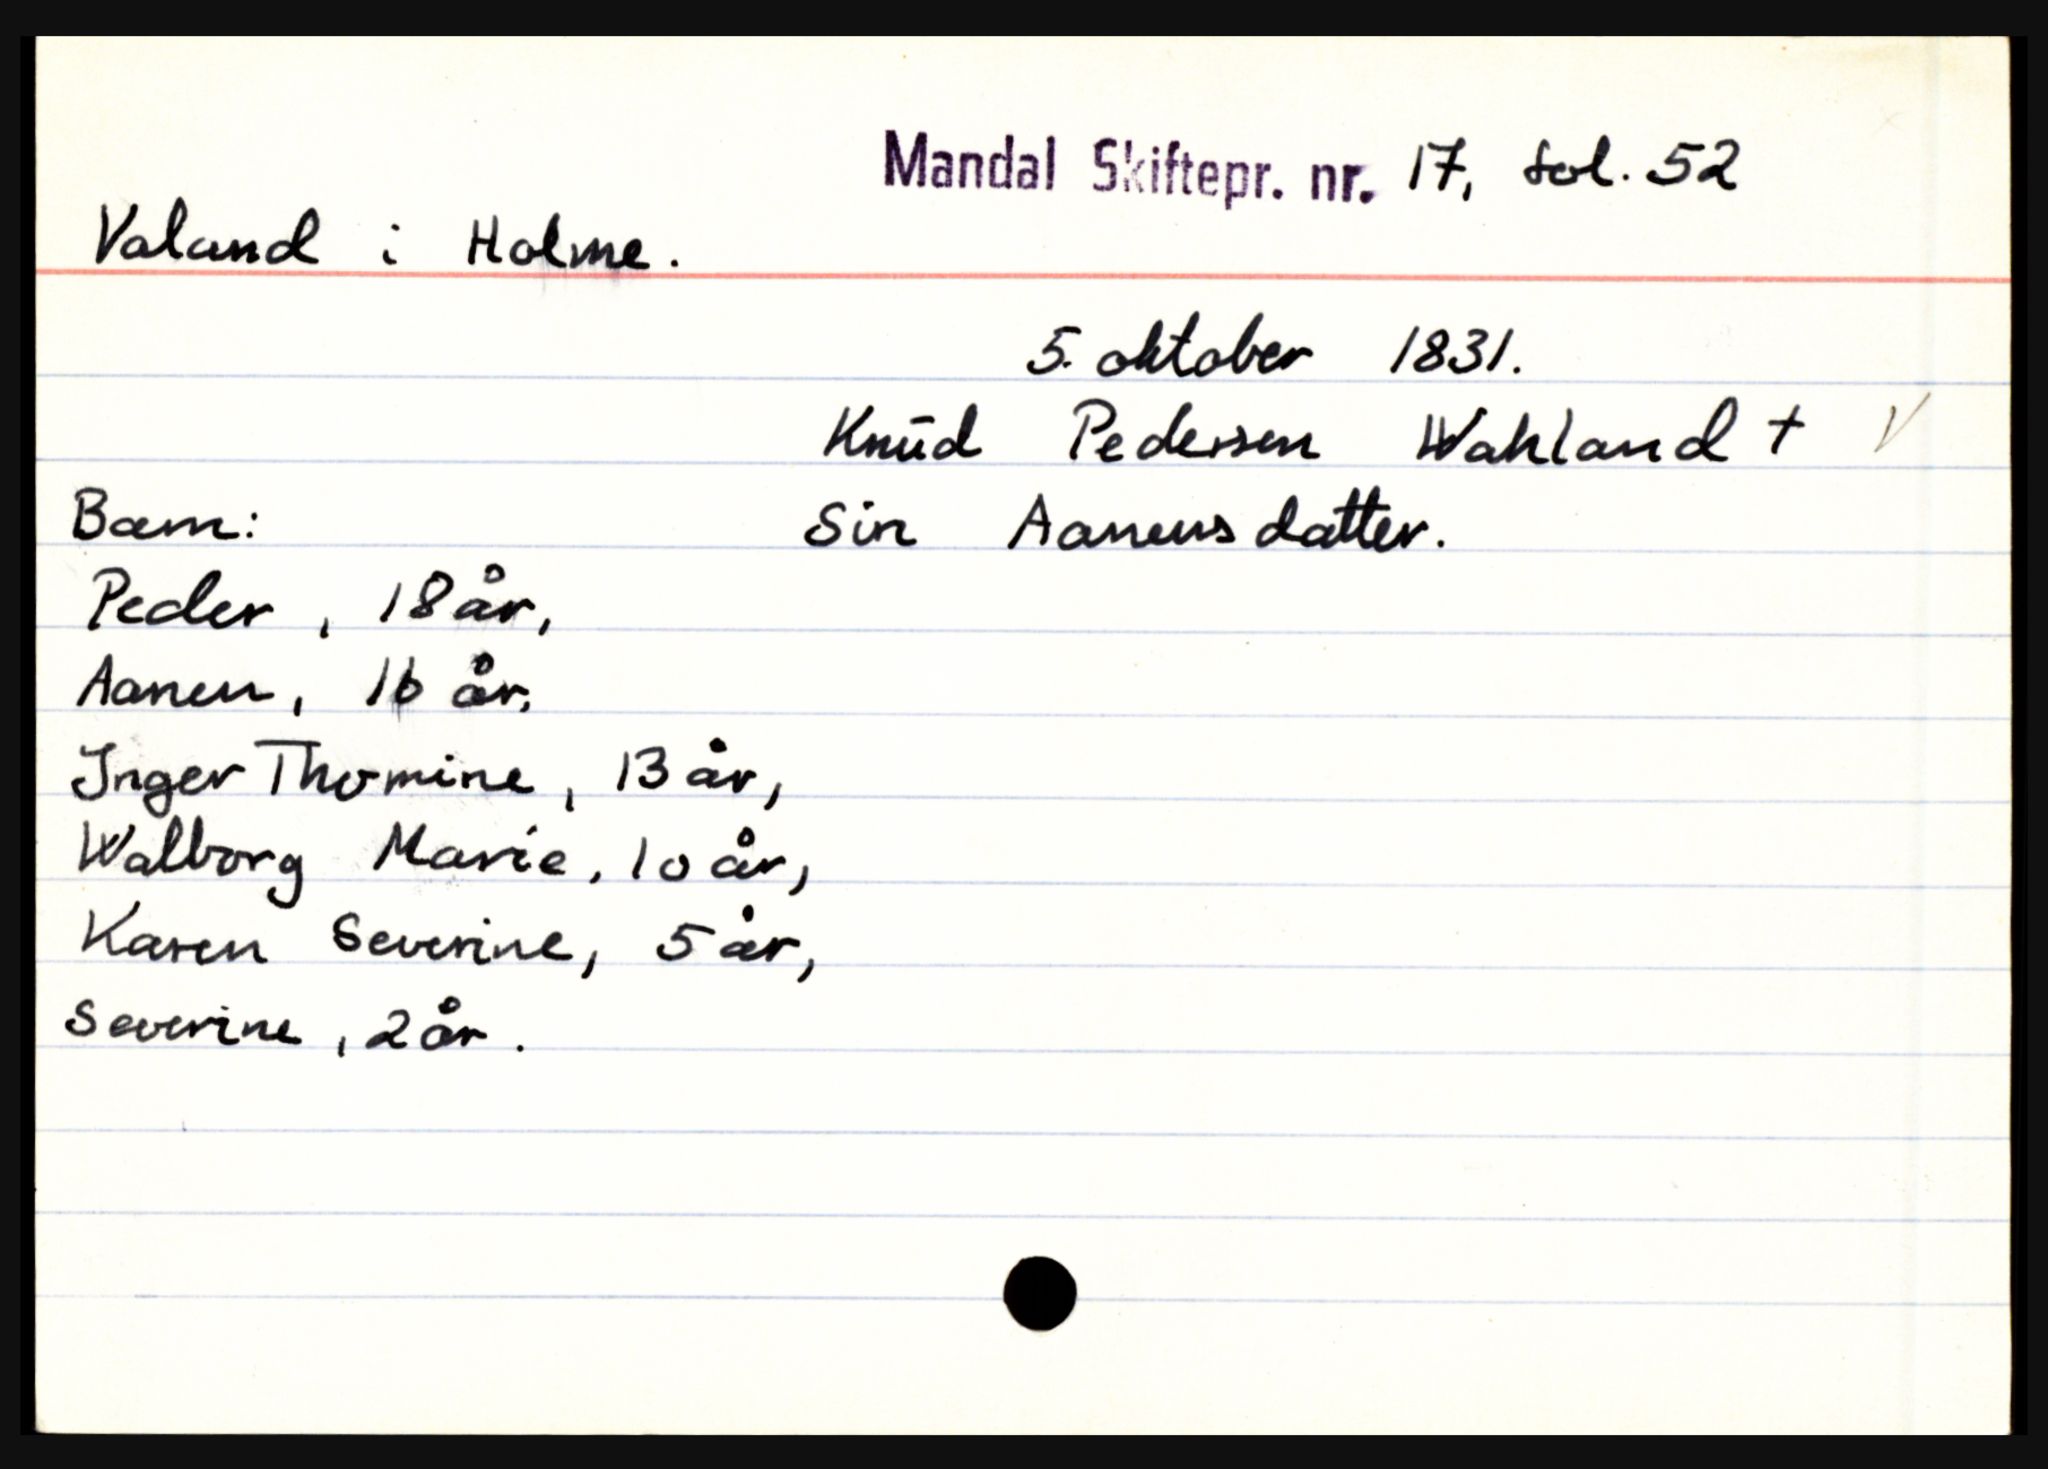 Mandal Skiftepr. nr. 17, fol. 52
Valand i Holme.
5. oktober 1831.
Knud Pedersen Wahland + V
Barn: Siri Aanensdatter.
Peder, 18 år,
Aanen, 16 år,
Inger Thomine, 13 år,
Walborg Marie, 10 år,
Karen Severine, 5 år,
Severine, 2 år.